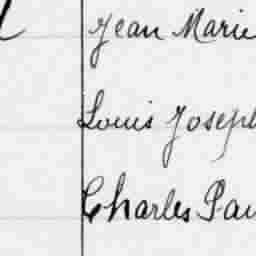 Jean Marie
Louis Joseph
Charles Pau